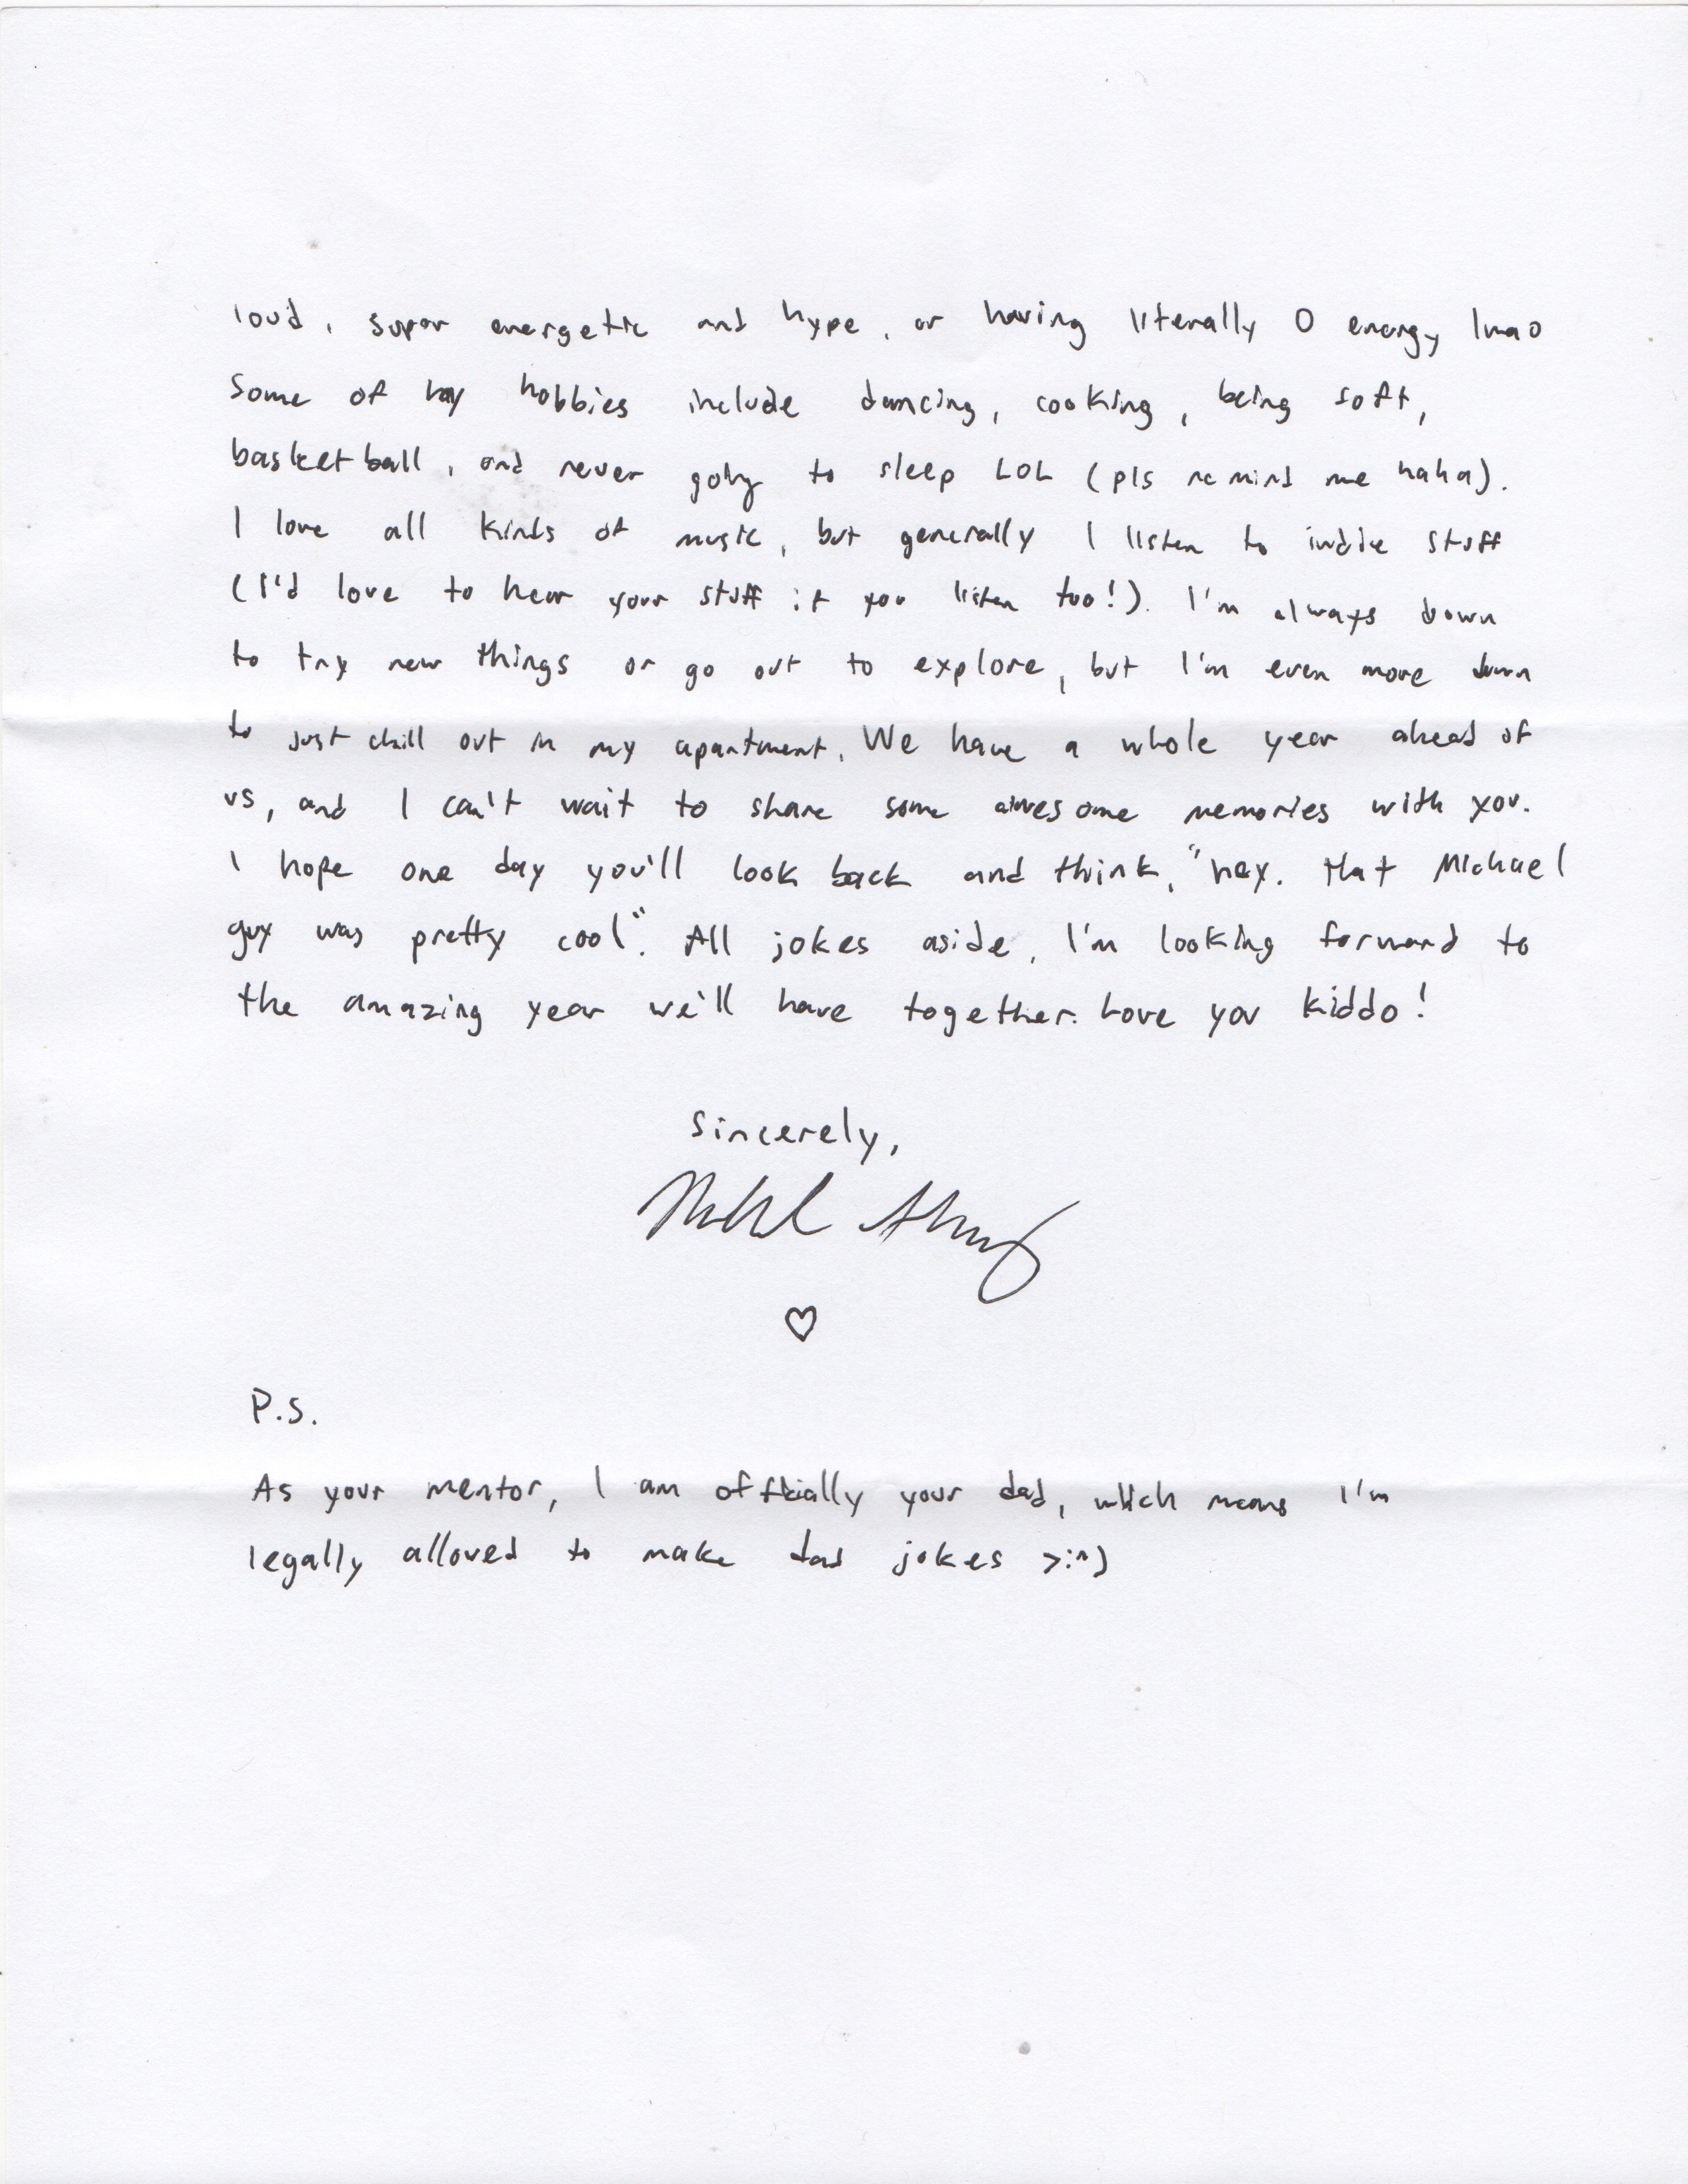 loud, super energetic and hype, or having literally 0 energy lmao
Some of my hobbies include dancing, cooking, being soft,
basketball, and never going to sleep LOL (pls remind me haha).
I love all kinds of music, but generally I listen to indie stuff
(I'd love to hear your stuff if you listen too!). I'm always down
to try new things or go out to explore, but I'm even more down
to just chill out in my apartment. We have a whole year ahead of
us, and I can't wait to share some awesome memories with you.
I hope one day you'll look back and think, "hey. that Michael
guy was pretty cool". All jokes aside, I'm looking forward to
the amazing year we'll have together. Love you kiddo!
Sincerely,
P.S.
As your mentor, I am officially your dad, which means I'm
legally allowed to make dad jokes >:^)